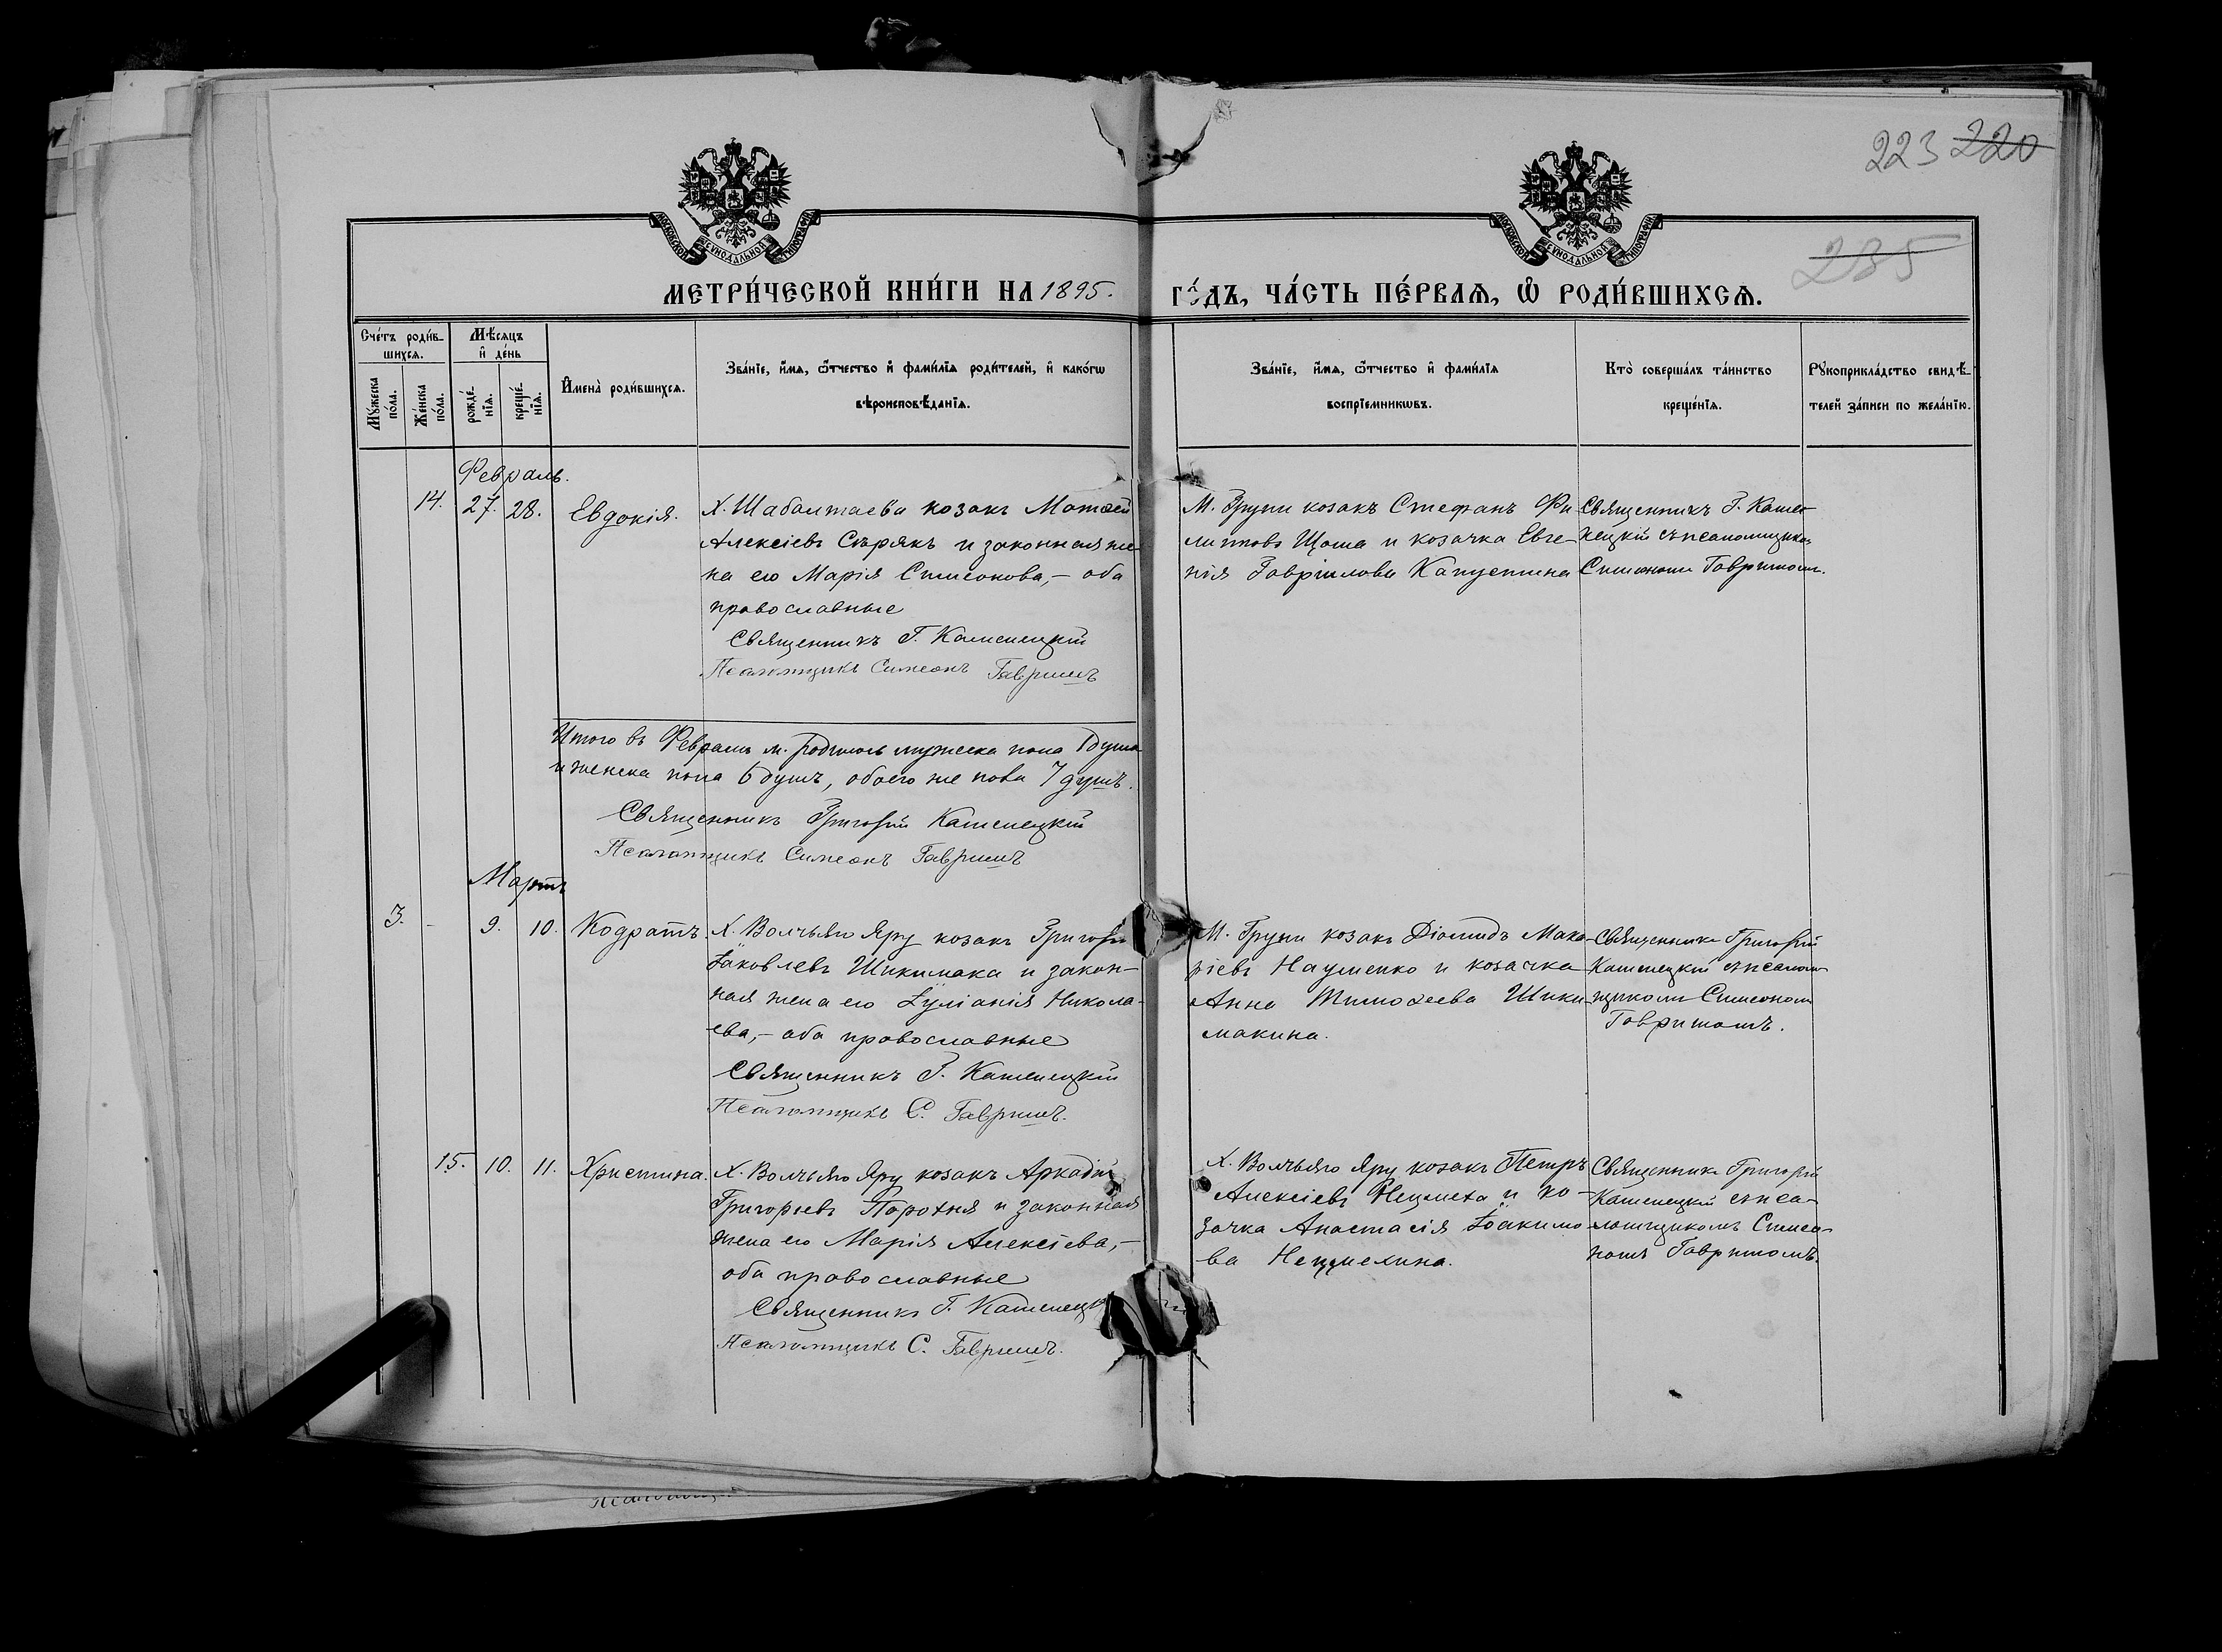 223 220
235
МОСКОВСКОЙ СѴНОДАЛЬНОЙ ТИПОГРАФІИ
МОСКОВСКОЙ СѴНОДАЛЬНОЙ ТИПОГРАФІИ
МЕТРИ́ЧЕСКОЙ КНИ́ГИ НА 1895.
ГО́ДЪ, ЧА́СТЬ ПЕ́РВАѦ, Ѡ҆ РОДИ́ВШИХСѦ.
Сче́тъ роди́в-
шихсѧ.
Мꙋ́жеска
по́ла.
Же́нска
по́ла.
Мѣ́сѧцъ
и҆ де́нь
рожде́-
нїѧ.
креще́-
нїѧ.
И҆мена̀ роди́вшихсѧ.
Зва́нїе, и҆́мѧ, ѻ҆́тчество и҆ фами́лїѧ роди́телей, и҆ како́гѡ
вѣроисповѣ́данїѧ.
Зва́нїе, и҆́мѧ, ѻ҆́тчество и҆ фами́лїѧ
воспрїе́мникѡвъ.
Кто̀ соверша́лъ та́инство
креще́нїѧ.
Рꙋкоприкла́дство свидѣ́-
телей за́писи по жела́нїю.
Февраль.
14. 27. 28. Евдокія.
Х. Шабалтаева козакъ Матѳей
Алексіевъ Сѣрякъ и законная же-
на его Марія Симеонова,- оба
православные
Священникъ Г. Каменецкій
Псаломщикъ Симеонъ Гавришъ
М. Груни козакъ Стефанъ Фи-
липповъ Щома и козачка Евге-
нія Гавріилова Капустина
Священникъ Г. Каме-
нецкій съ псаломщикомъ
Симеономъ Гавришомъ.
Итого въ Февралѣ м. родилось мужеска пола 1 душа
и женска пола 6 душъ, обоего же пола 7 душъ.
Священникъ Григорій Каменецкій
Псаломщикъ Симеонъ Гавришъ
Мартъ
3. - 9. 10. Кодратъ.
Х. Волчьяго Яру козакъ Григорій
Іаковлевъ Шикимака и закон-
ная жена его Іуліанія Никола-
ева,- оба православные
Священникъ Г. Каменецкій
Псаломщикъ С. Гавришъ.
М. Груни козакъ Діомидъ Мака-
ріевъ Науменко и козачка
Анна Тимоѳеева Шики-
макина.
Священникъ Григорій
Каменецкій съ псалом-
щикомъ Симеономъ
Гавришомъ.
15. 10. 11. Христина.
Х. Волчьяго Яру козакъ Аркадій
Григорьевъ Порохня и законная
жена его Марія Алексіева,-
оба православные
Священникъ Г. Каменецк
Псаломщикъ С. Гавришъ.
Х. Волчьяго Яру козакъ Петръ
Алексіевъ и ко-
зачка Анастасія Іоакимо-
ва
Священникъ Григорій
Каменецкій съ пса-
ломщикомъ Симео-
номъ Гавришомъ.